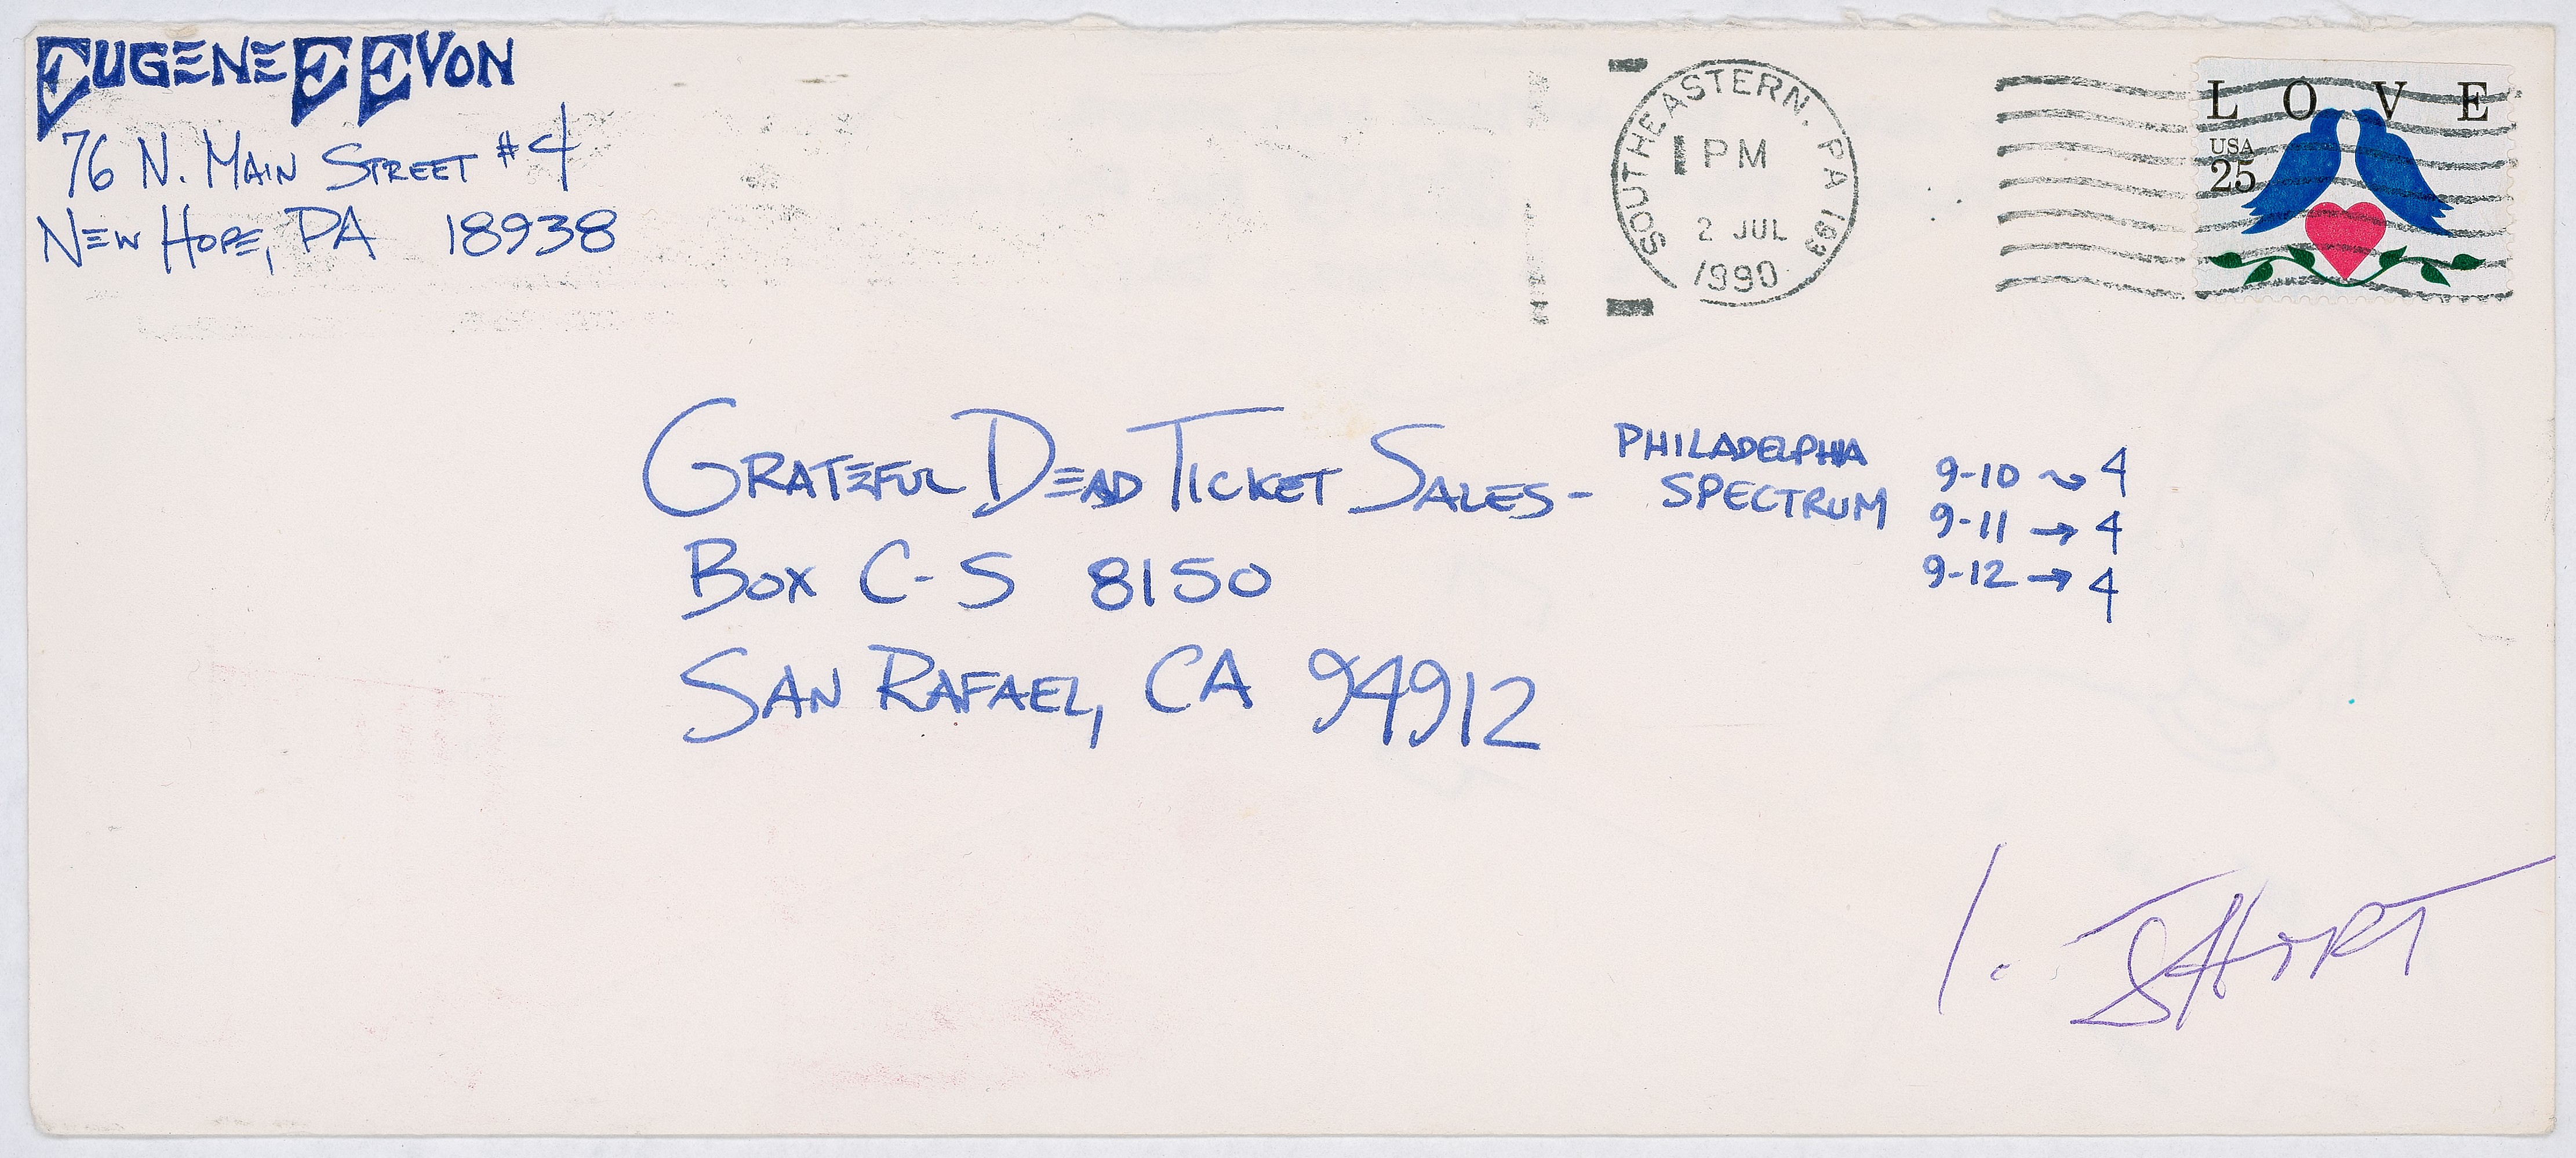 EUGENE E EVON
76 N. MAIN STREET #4
NEW HOPE, PA 18938
SOUTHEASTERN, PA 193
PM
2 JUL
1990
L O V E
USA
25
GRATEFUL DEAD TICKET SALES-
PHILADELPHIA
SPECTRUM
9-10 → 4
9-11 → 4
9-12 → 4
BOX C-S 8150
SAN RAFAEL, CA 94912